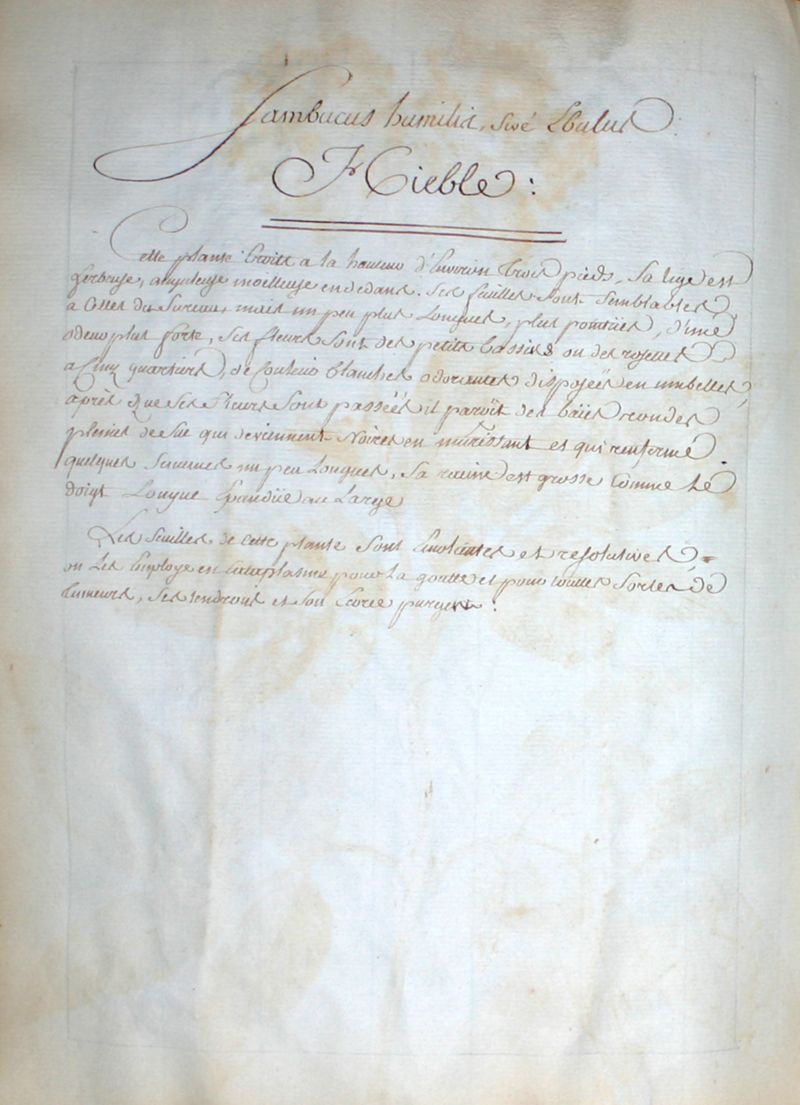 Sambucus humilis, sive Ebulus.
Hieble :
Cette plante Croitt a la hauteur d'Environ Trois pieds, Sa tige est
herbeuse, anguleuse moëlleuse en dedans. Ses feuilles sont semblables
a Celles du Sureau, mais un peu plus Longues, plus pointües, d'une
odeur plus forte, Ses fleurs sont des petits bassins ou des rosettes
a Cinq quartiers, de Couleur blanches odorantes disposées en umbelles,
après que Ses fleurs sont passées il paroït des baïes rondes
pleines de Suc qui deviennent Noires en murissant et qui renferme
quelques Semences un peu Longues, Sa racine est grosse Comme Le
doigt Longue Epandüe au Large
Les feuilles de cette plante sont Emolientes et resolutives,
on Les Employe en Cataplasme pour La goutte et pour toutes Sortes de
tumeurs, Ses tendrons et Son Ecorce purgent :